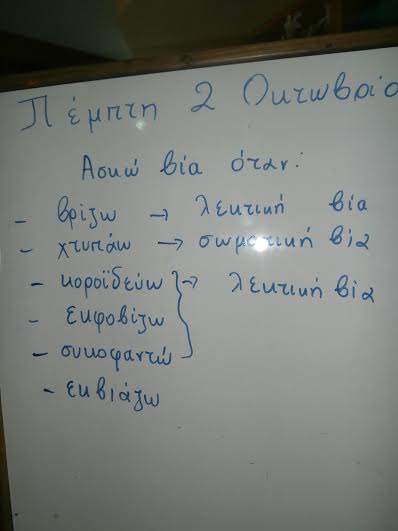 Πέμπτη 2 Οκτωβρίο
Ασκώ βία όταν:
- βρίζω → λεκτική βία
- χτυπάω → σωματική βία
- κοροϊδεύω } → λεκτική βία
- εκφοβίζω
- συκοφαντώ
- εκβιάζω